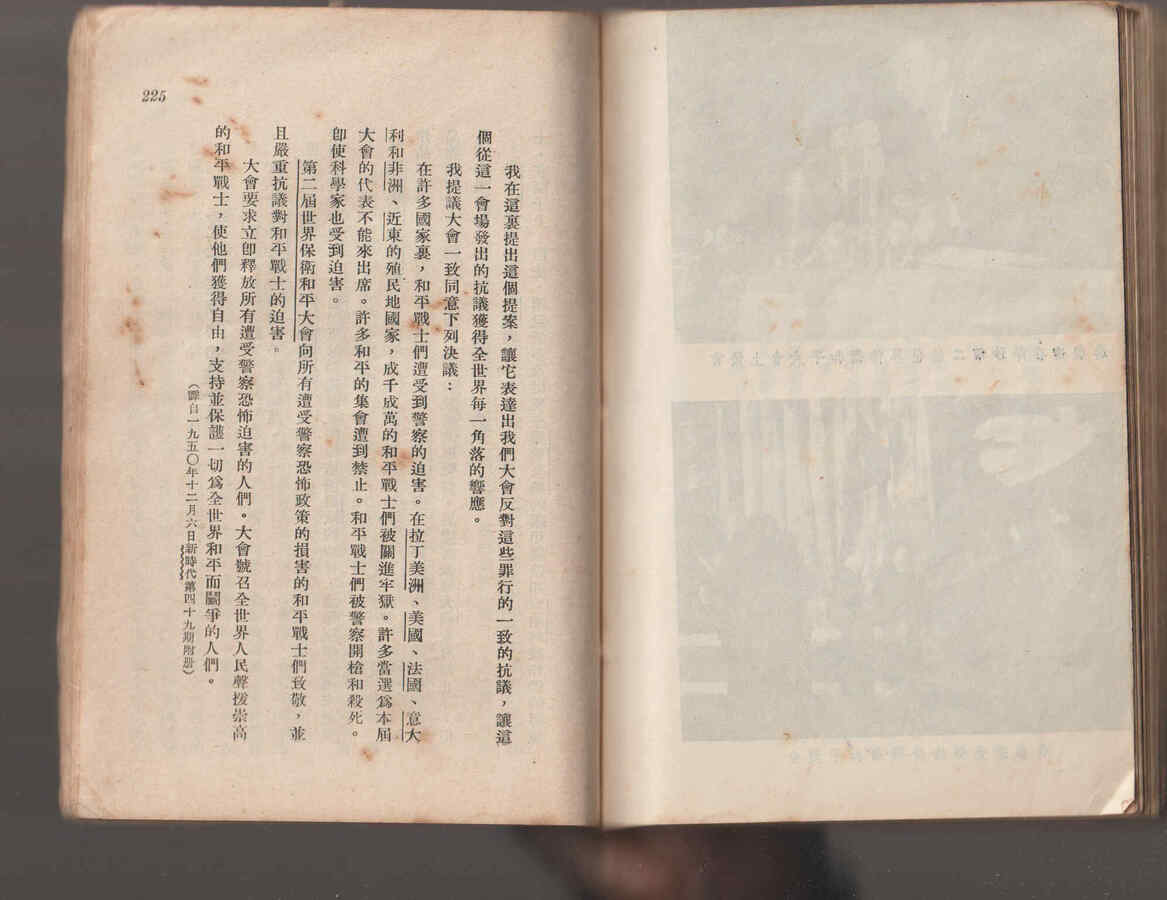 我在這裏提出這個提案，讓它表達出我們大會反對這些罪行的一致的抗議，讓這
個從這一會場發出的抗議獲得全世界每一角落的響應。
我提議大會一致同意下列決議：
在許多國家裏，和平戰士們遭受到警察的迫害。在拉丁美洲、美國、法國、意大
利和非洲、近東的殖民地國家，成千成萬的和平戰士們被關進牢獄。許多當選爲本屆
大會的代表不能來出席。許多和平的集會遭到禁止。和平戰士們被警察開槍和殺死。
卽使科學家也受到迫害。
第二屆世界保衛和平大會向所有遭受警察恐怖政策的損害的和平戰士們致敬，並
且嚴重抗議對和平戰士的迫害。
大會要求立卽釋放所有遭受警察恐怖迫害的人們。大會號召全世界人民聲援崇高
的和平戰士，使他們獲得自由，支持並保護一切爲全世界和平而鬭爭的人們。
（譯自一九五〇年十二月六日新時代第四十九期附册）
225